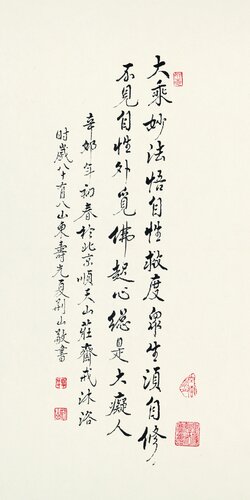 大乘妙法悟自性救度眾生須自修
不見自性外覓佛起心總是大癡人
辛卯年初春於北京順天山莊齋戒沐浴
时歲八十有八山東壽光夏荆山敬書